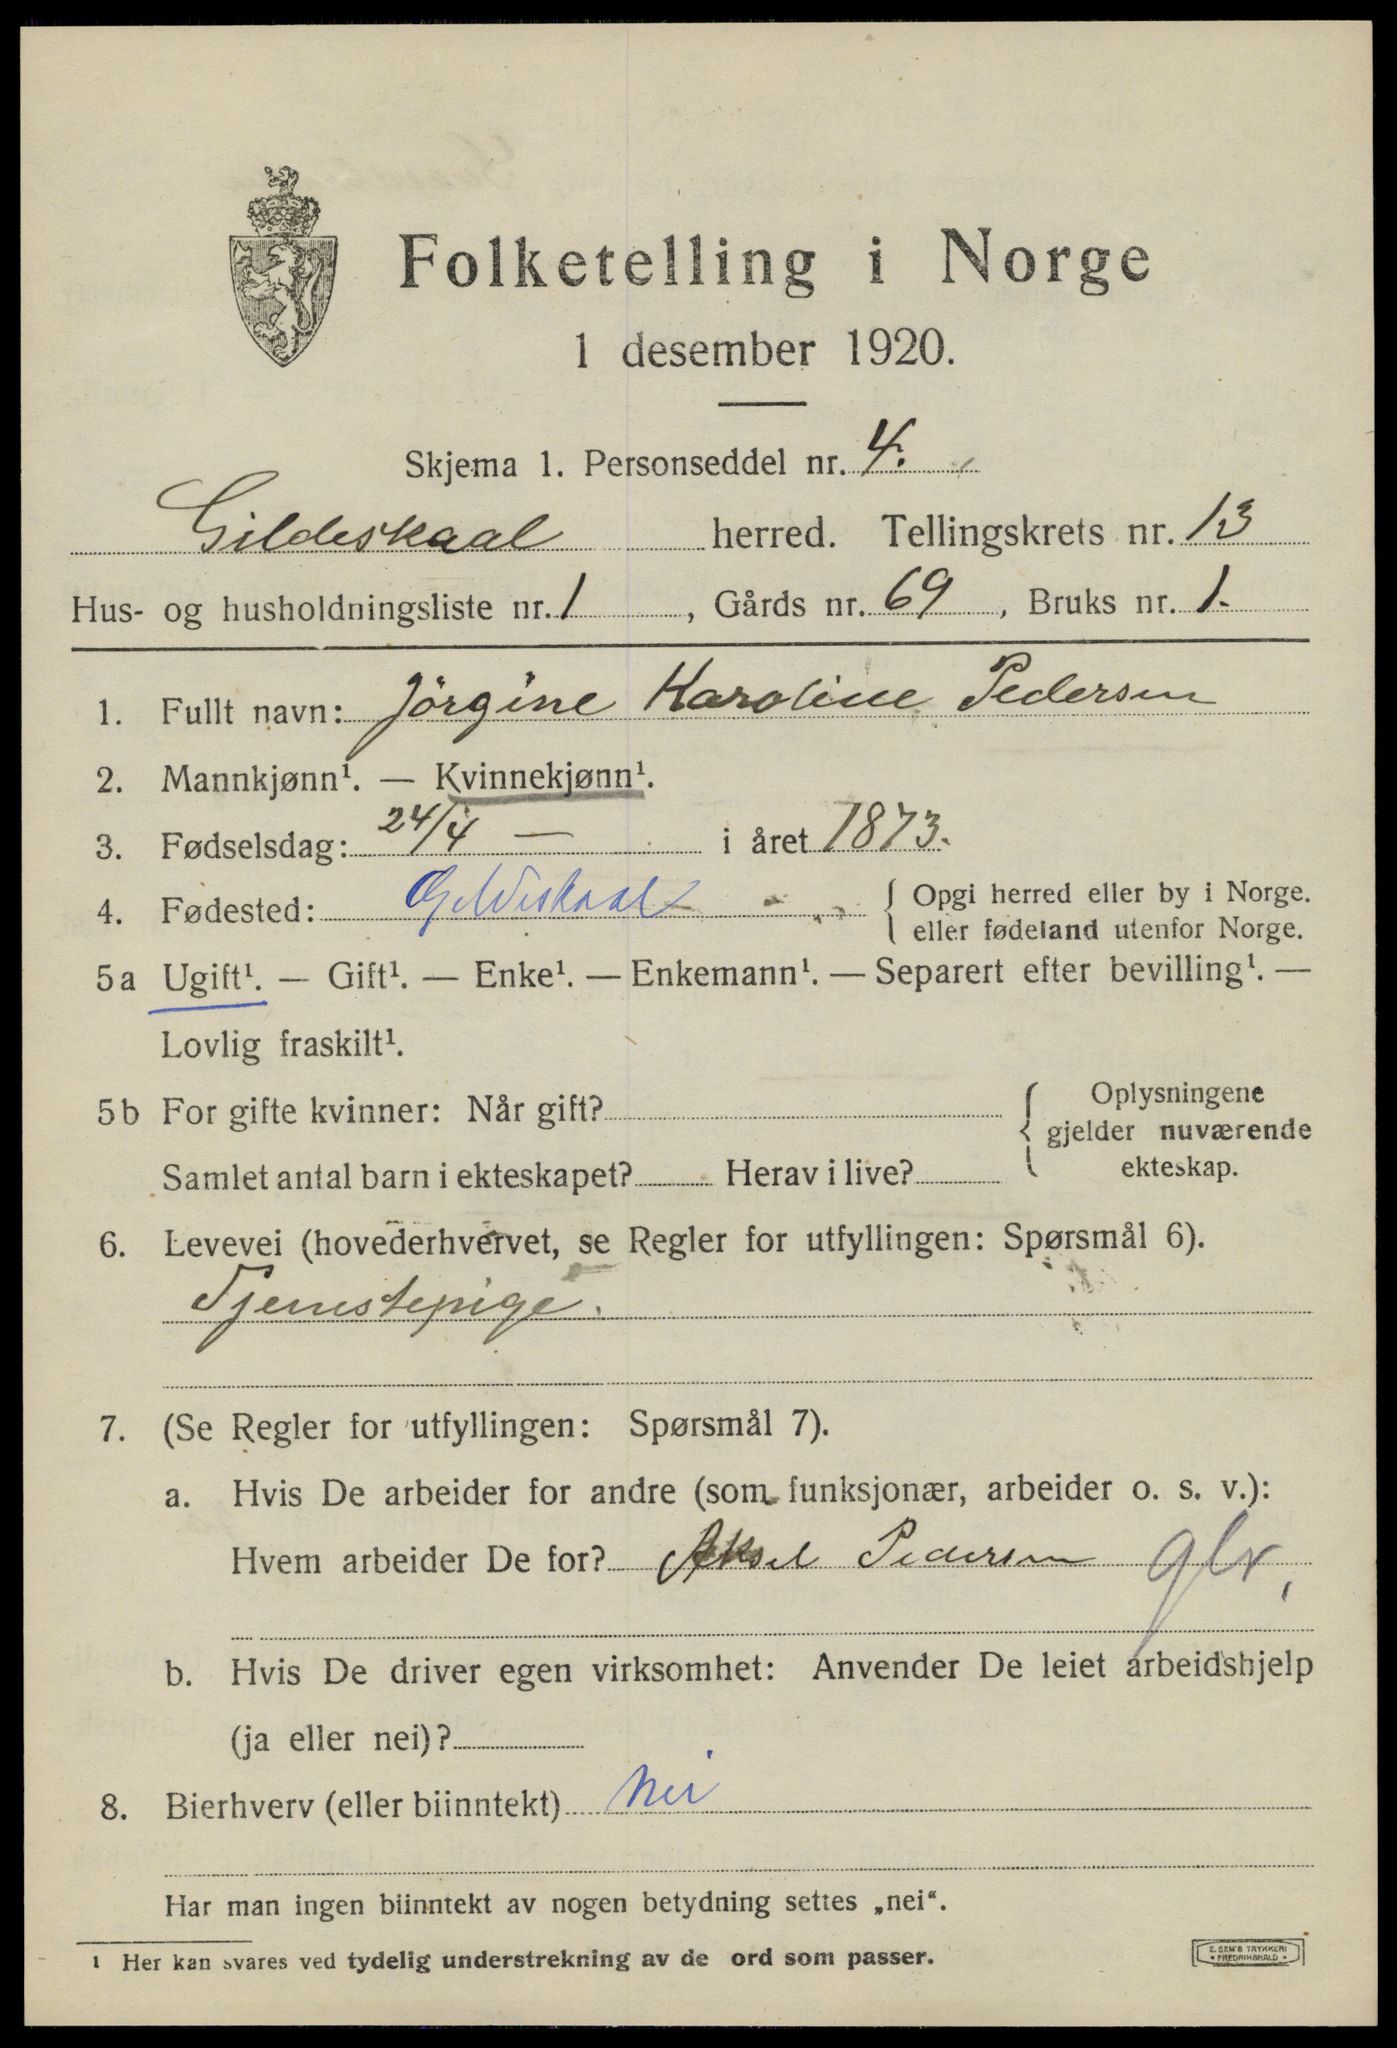 Folketelling i Norge
1 desember 1920.
Skjema 1. Personseddel nr. 4.
Gildeskaal herred. Tellingskrets nr. 13
Hus- og husholdningsliste nr. 1, Gårds nr. 69, Bruks nr. 1.
1. Fullt navn: Jörgine Karoline Pedersen
2. Mannkjønn¹. — Kvinnekjønn¹.
3. Fødselsdag: 24/4 — i året 1873.
4. Fødested: Gildeskaal { Opgi herred eller by i Norge.
eller fødeland utenfor Norge.
5a Ugift¹. — Gift¹. — Enke¹. — Enkemann¹. — Separert efter bevilling¹. —
Lovlig fraskilt¹.
5b For gifte kvinner: Når gift? { Oplysningene
gjelder nuværende
Samlet antal barn i ekteskapet? Herav i live? ekteskap.
6. Levevei (hovederhvervet, se Regler for utfyllingen: Spørsmål 6).
Tjenestepige.
7. (Se Regler for utfyllingen: Spørsmål 7).
a. Hvis De arbeider for andre (som funksjonær, arbeider o. s. v.):
Hvem arbeider De for? Aksel Pedersen gbr,
b. Hvis De driver egen virksomhet: Anvender De leiet arbeidshjelp
(ja eller nei)?
8. Bierhverv (eller biinntekt) Nei
Har man ingen biinntekt av nogen betydning settes „nei“.
¹ Her kan svares ved tydelig understrekning av de ord som passer.
E. SEM'S TRYKKERI
• FREDRIKSHALD •